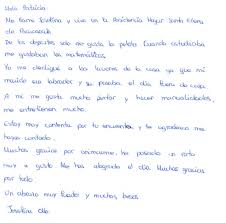 Hola Patricia:
Me llamo Josefina y vivo en la Residencia Hogar Santa Elena
de
De los deportes solo me gusta la pelota. Cuando estudiaba
me gustaban las matemáticas.
Yo me dedique a las labores de la casa ya que mi
marido era labrador y se pasaba el día fuera de casa.
A mi me gusta mucho pintar y hacer manualidades,
me entretienen mucho.
Estoy muy contenta por tu encuentro y te agradezco me
hayas contado.
Muchas gracias por animarme, he pasado un rato
muy a gusto. Me has alegrado el día. Muchas gracias
por todo.
Un abrazo muy fuerte y muchos besos
Josefina